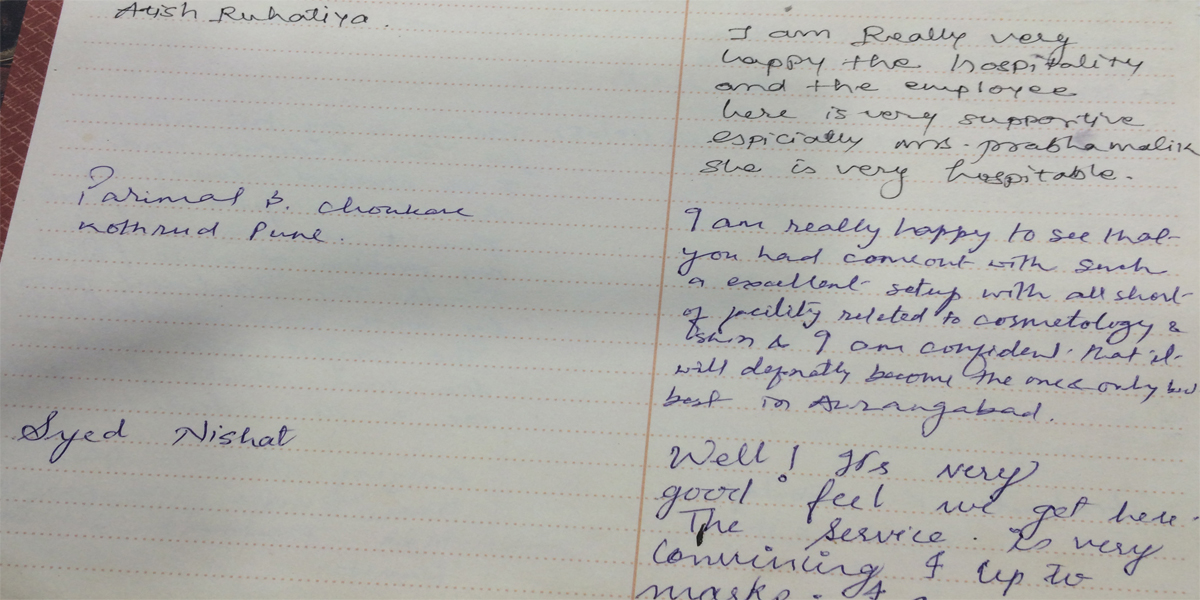 Atish Ruhatiya.
I am Really very
happy the hospitality
and the employee
here is very supportive
espicially mrs. prabha malik
she is very hospitable.
Parimal B.
Kothrud Pune.
I am really happy to see that
you had comeout with such
a excellent setup with all short
of facility related to cosmetology &
skin & I am confident that it
will definatly become the one & only
best in Aurangabad.
Syed Nishat
Well! It's very
good feel we get here.
The service. is very
convincing & up to
marks.